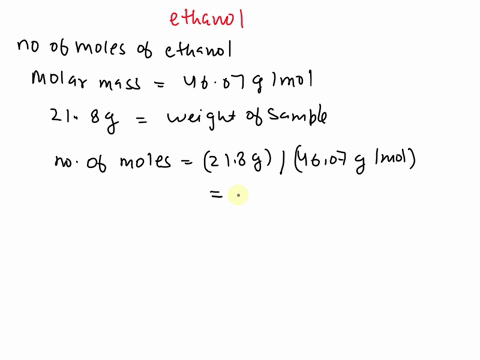 ethanol
no of moles of ethanol
Molar mass = 46.07 g/mol
21.8g = weight of sample
no. of moles = (21.8 g) / (46.07 g/mol)
=